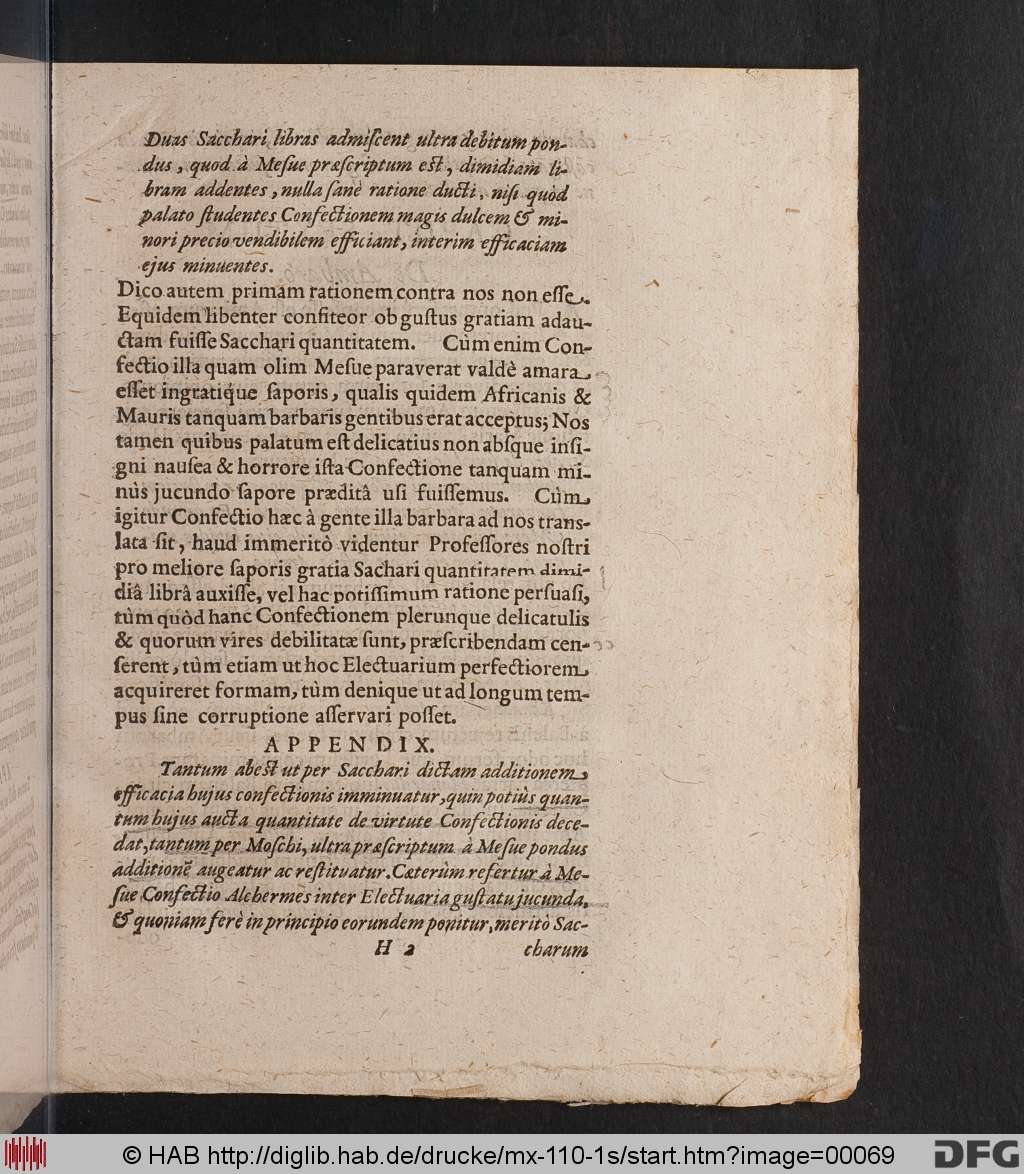 Duas Sacchari libras admiſcent ultra debitum pon-
dus, quod à Meſue præſcriptum est, dimidiam li-
bram addentes, nulla ſanè ratione ducti, niſi quòd
palato ſtudentes Confectionem magis dulcem & mi-
nori precio vendibilem efficiant, interim efficaciam
ejus minuentes.
Dico autem primam rationem contra nos non eſſe.
Equidem libenter confiteor ob guſtus gratiam adau-
ctam fuiſſe Sacchari quantitatem. Cùm enim Con-
fectio illa quam olim Meſue paraverat valdè amara
eſſet ingratiq́ue ſaporis, qualis quidem Africanis &
Mauris tanquam barbaris gentibus erat acceptus; Nos
tamen quibus palatum eſt delicatius non abſque inſi-
gni nauſea & horrore iſta Confectione tanquam mi-
nùs jucundo ſapore præditâ uſi fuiſſemus. Cùm
igitur Confectio hæc à gente illa barbara ad nos trans-
lata ſit, haud immeritò videntur Profeſſores noſtri
pro meliore ſaporis gratia Sachari quantitatem dimi-
diâ librâ auxiſſe, vel hac potiſſimum ratione perſuaſi,
tùm quòd hanc Confectionem plerunque delicatulis
& quorum vires debilitatæ ſunt, præſcribendam cen-
ſerent, tùm etiam ut hoc Electuarium perfectiorem
acquireret formam, tùm denique ut ad longum tem-
pus ſine corruptione aſſervari poſſet.
APPENDIX.
Tantum abest ut per Sacchari dictam additionem
efficacia hujus confectionis imminuatur, quin potiùs quan-
tum hujus aucta quantitate de virtute Confectionis dece-
dat, tantum per Moſchi, ultra præſcriptum à Meſue pondus
additionē augeatur ac reſtituatur. Cæterùm refertur à Me-
ſue Confectio Alchermes inter Electuaria guſtatu jucunda,
& quoniam ferè in principio eorundem ponitur, meritò Sac-
H 2 charum
© HAB http://diglib.hab.de/drucke/mx-110-1s/start.htm?image=00069
DFG